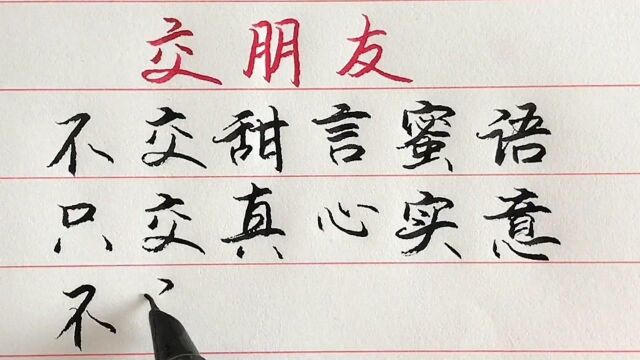 交朋友
不交甜言蜜语
只交真心实意
不